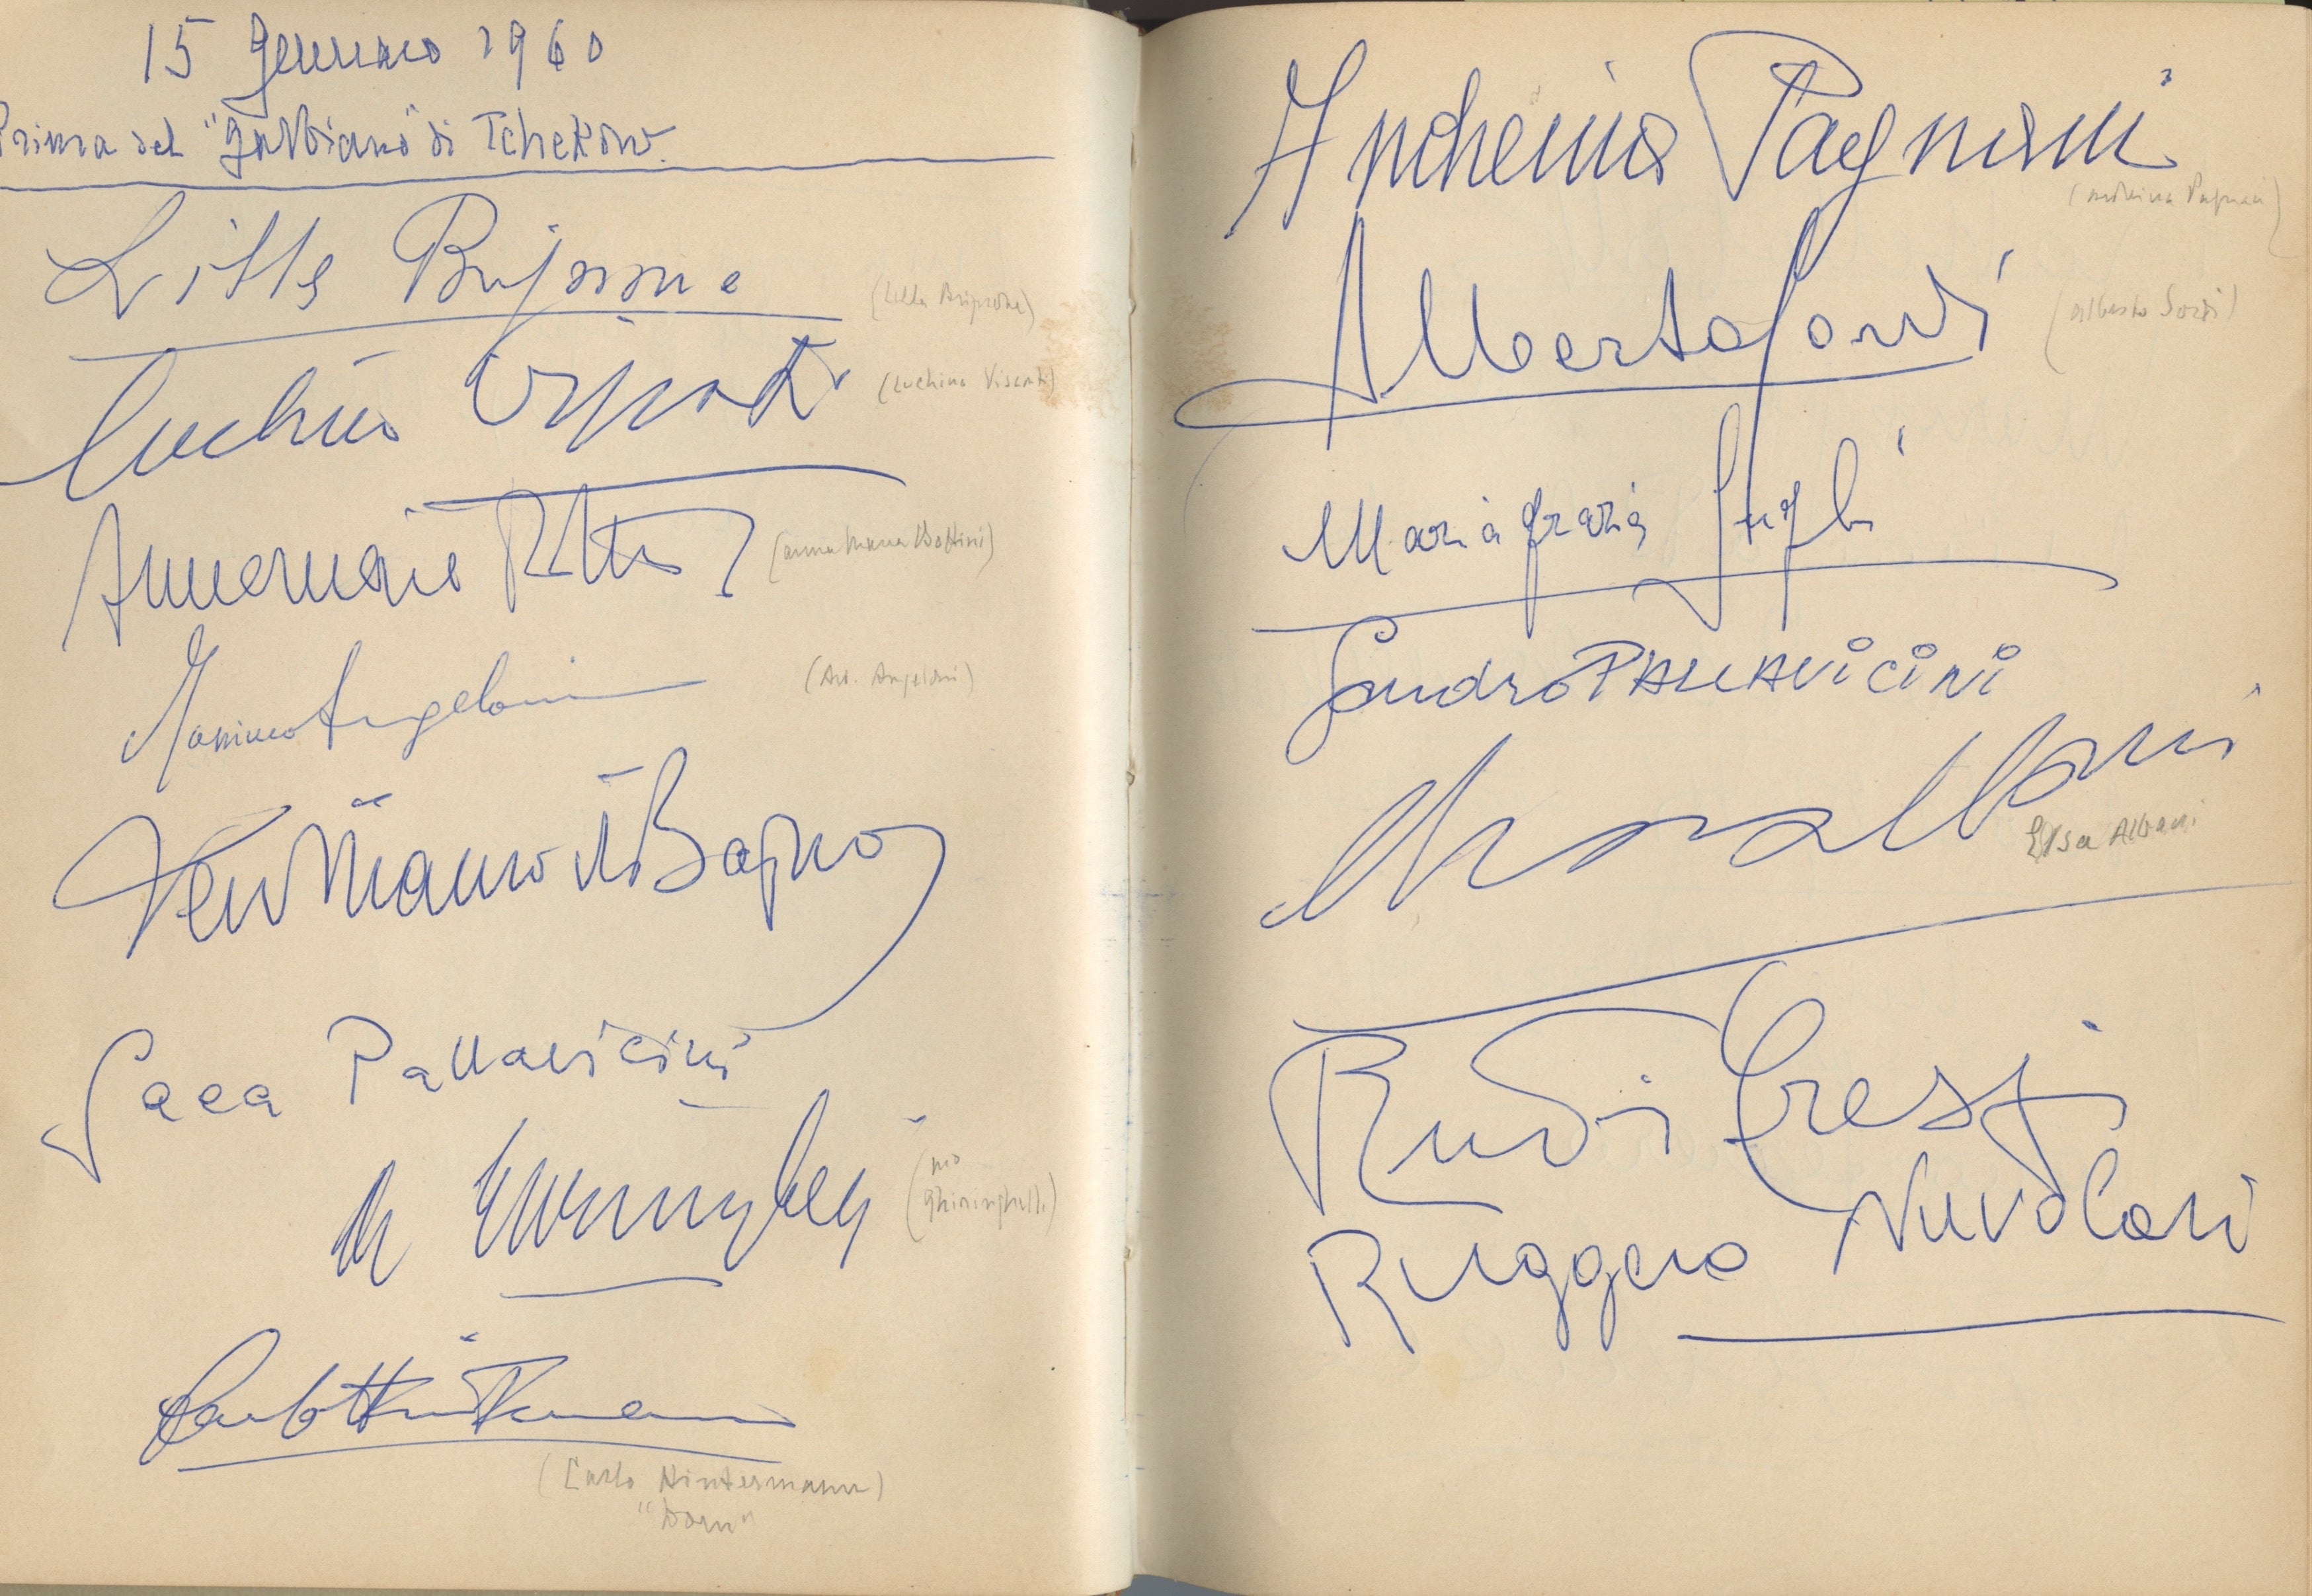 15 Gennaio 1960
Prima del "Gabbiano" di Tchekow.
Lilla Brignone
(Lilla Brignone)
Luchino Visconti
(Luchino Visconti)
Annamaria
(Anna Maria Bottini)
Massimo Angelonis
(Avv. Angeloni)
Bagno
Gaea Pallavicini
Ghiringhelli
Ghiringhelli)
Carlo Hintermann
(Carlo Hintermann)
"Dorn"
Andreina Pagnani
(Andreina Pagnani)
Alberto Sordi
(Alberto Sordi)
Maria Grazia
Sandro PALLAVICINI
Elsa Albani
Elsa Albani
Rudi Crespi
Ruggero Nuvolari